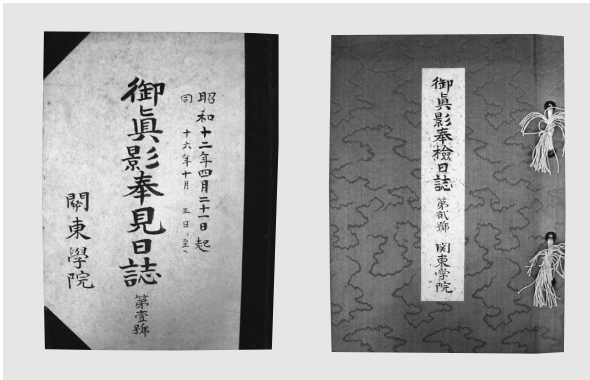 昭和十二年四月二十一日起
同 十六年十月 三日 至
御眞影奉見日誌 第壹號
關東學院
御眞影奉檢日誌 第貳號 関東学院